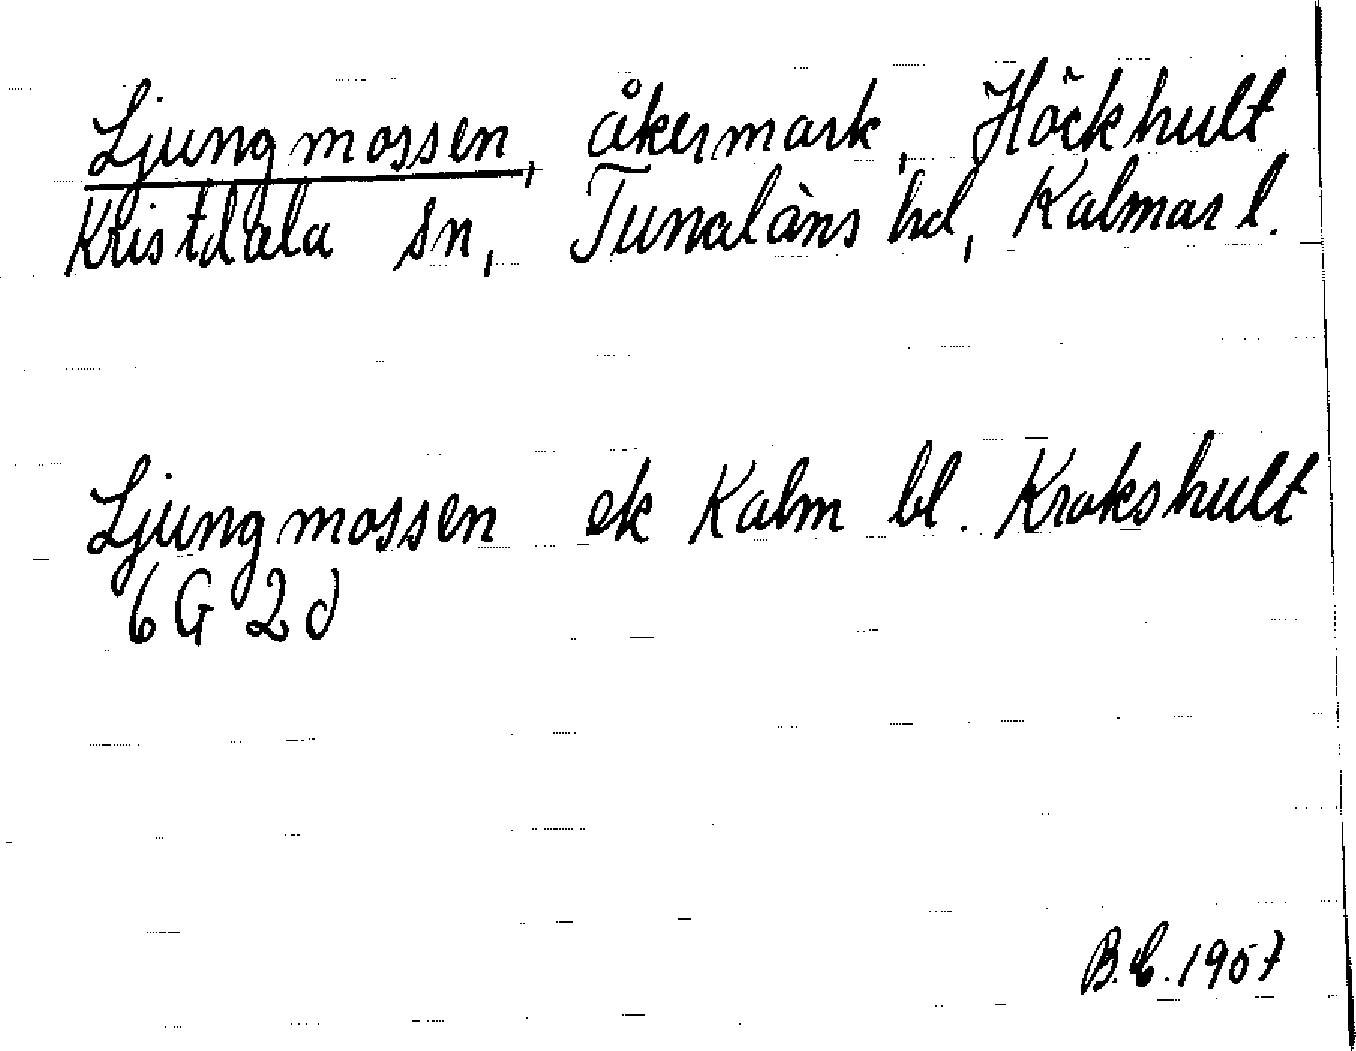 Ljungmossen, åkermark, Höckhult
Kristdala sn, Tunaläns hd, Kalmar l.
Ljungmossen ek Kalm bl. Krokshult
6 G 2 d
B.C. 1957